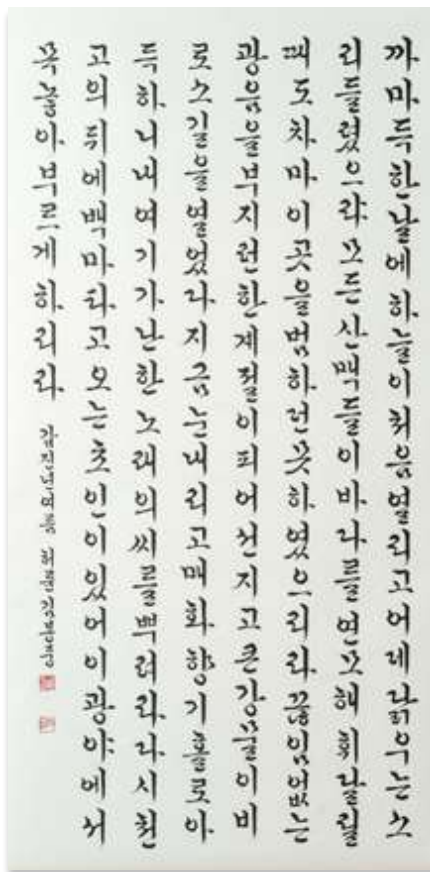 까마득한날에하늘이처음열리고어데닭우는소
리들렸으랴모든산맥들이바다를연모해휘달릴
때도차마이곳을범하던못하였으리라끊임없는
광음을부지런한계절이피어선지고큰강물이비
로소길을열었다지금눈내리고매화향기홀로아
득하니내여기가난한노래의씨를뿌려라다시천
고의뒤에백마타고오는초인이있어이광야에서
목놓아부르게하리라 갑진년여름